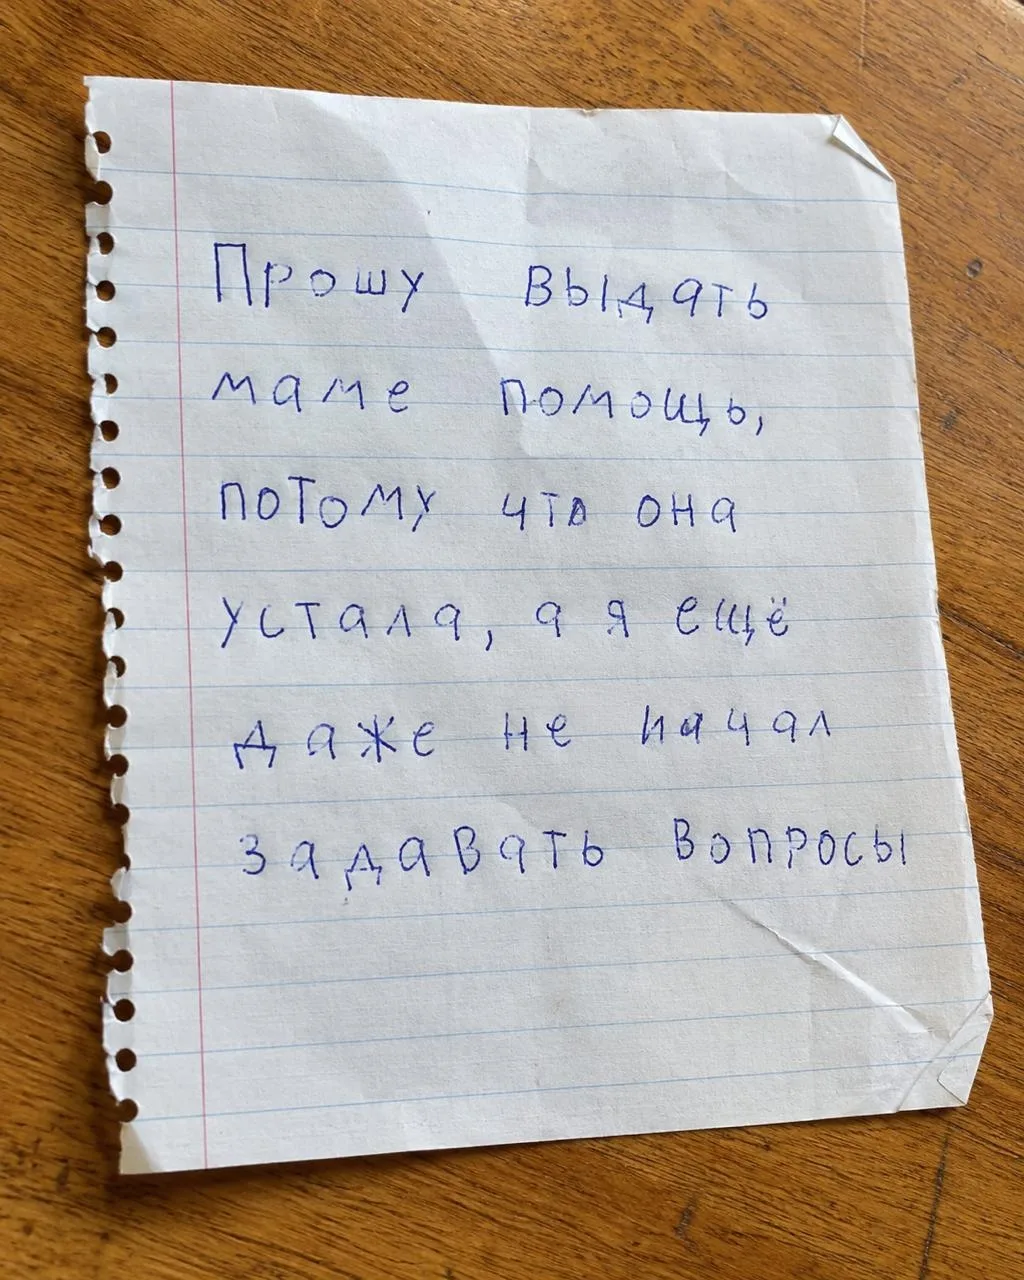 Прошу выдать
маме помощь,
потому что она
устала, а я ещё
даже не начал
задавать вопросы